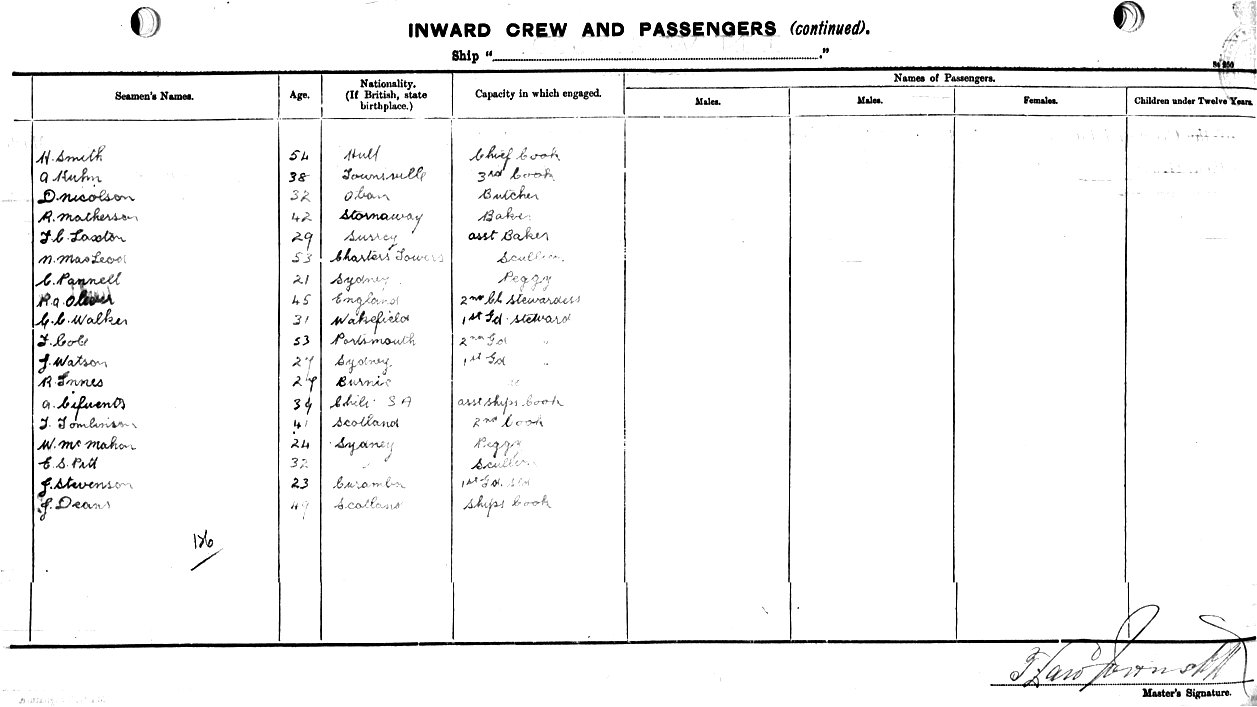 INWARD CREW AND PASSENGERS (continued).
Ship " "
Seamen's Names. Age. Nationality. (If British, state birthplace.) Capacity in which engaged. Names of Passengers.
Males. Males. Females. Children under Twelve Years.
H. Smith 54 Hull Chief Cook
A Kuhn 38 Townsville 3rd Cook
D. Nicolson 32 Oban Butcher
R. Matherson 42 Stornaway Baker
T. C. Laxton 29 Surrey asst Baker
N. MacLeod 53 Charters Towers Scullion
C. Pannell 21 Sydney Peggy
R. A. Oliver 45 England 2nd Cl Stewardess
C. C. Walker 31 Wakefield 1st Gd. Steward
T. Cole 53 Portsmouth 2nd Gd "
J. Watson 27 Sydney 1st Gd "
R. Innes 27 Burnie "
A. Cifuents 39 Chili S A asst Ships Cook
T. Tomlinson 41 Scotland 2nd Cook
W. McMahon 24 Sydney Peggy
E. S. Pitt 32 " Scullion
J. Stevenson 23 1st Gd. Std
J. Deans 49 Scotland Ships Cook
126
Master's Signature.